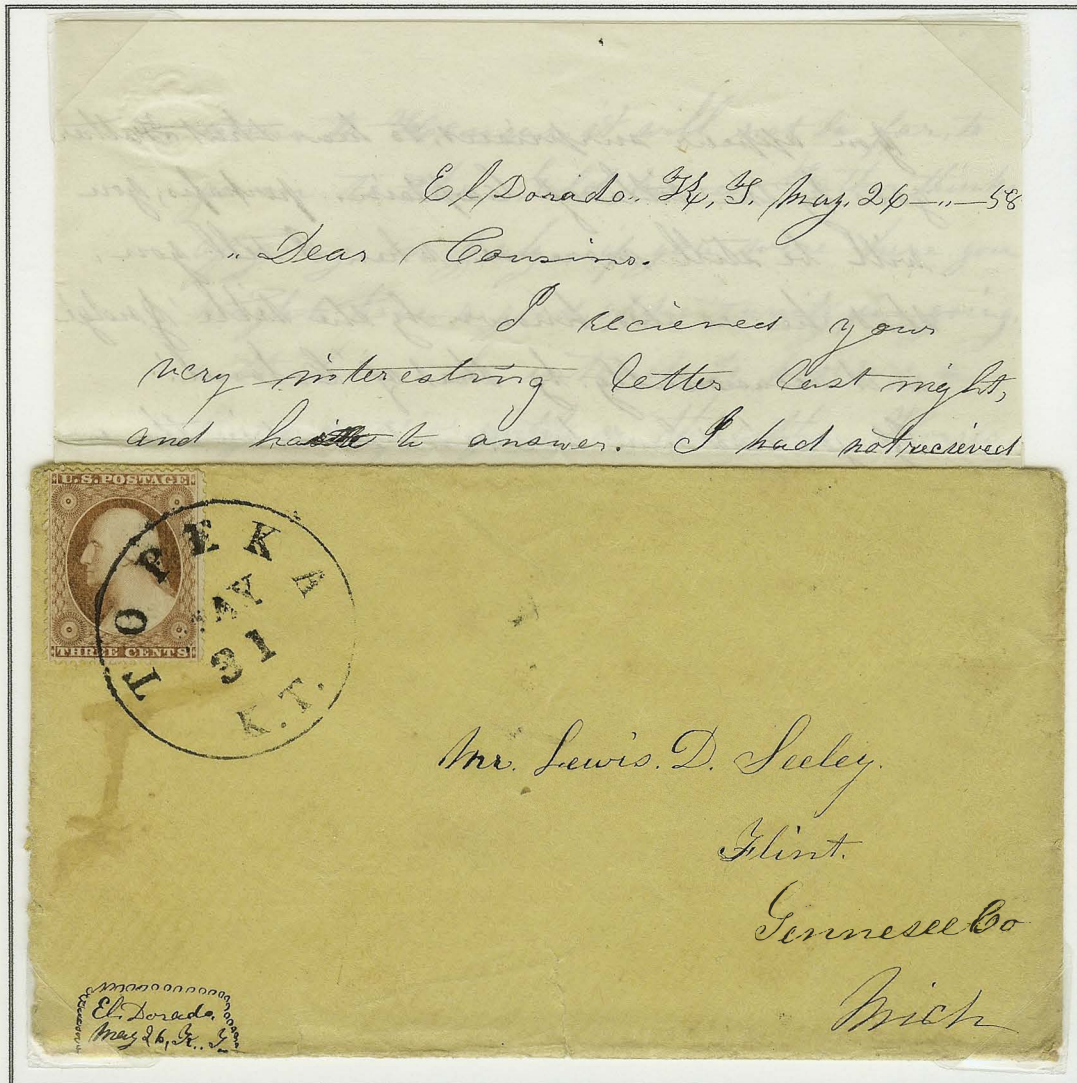 El Dorado. K, T. May. 26–..–58
.. Dear Cousins.
I recieved your
very interesting letter last night,
and to answer. I had not recieved
U.S. POSTAGE
THREE CENTS
TOPEKA
MAY
31
K.T.
Mr. Lewis. D. Seeley.
Flint.
Gennesee Co
Mich
El Dorado
May 26, K. T.